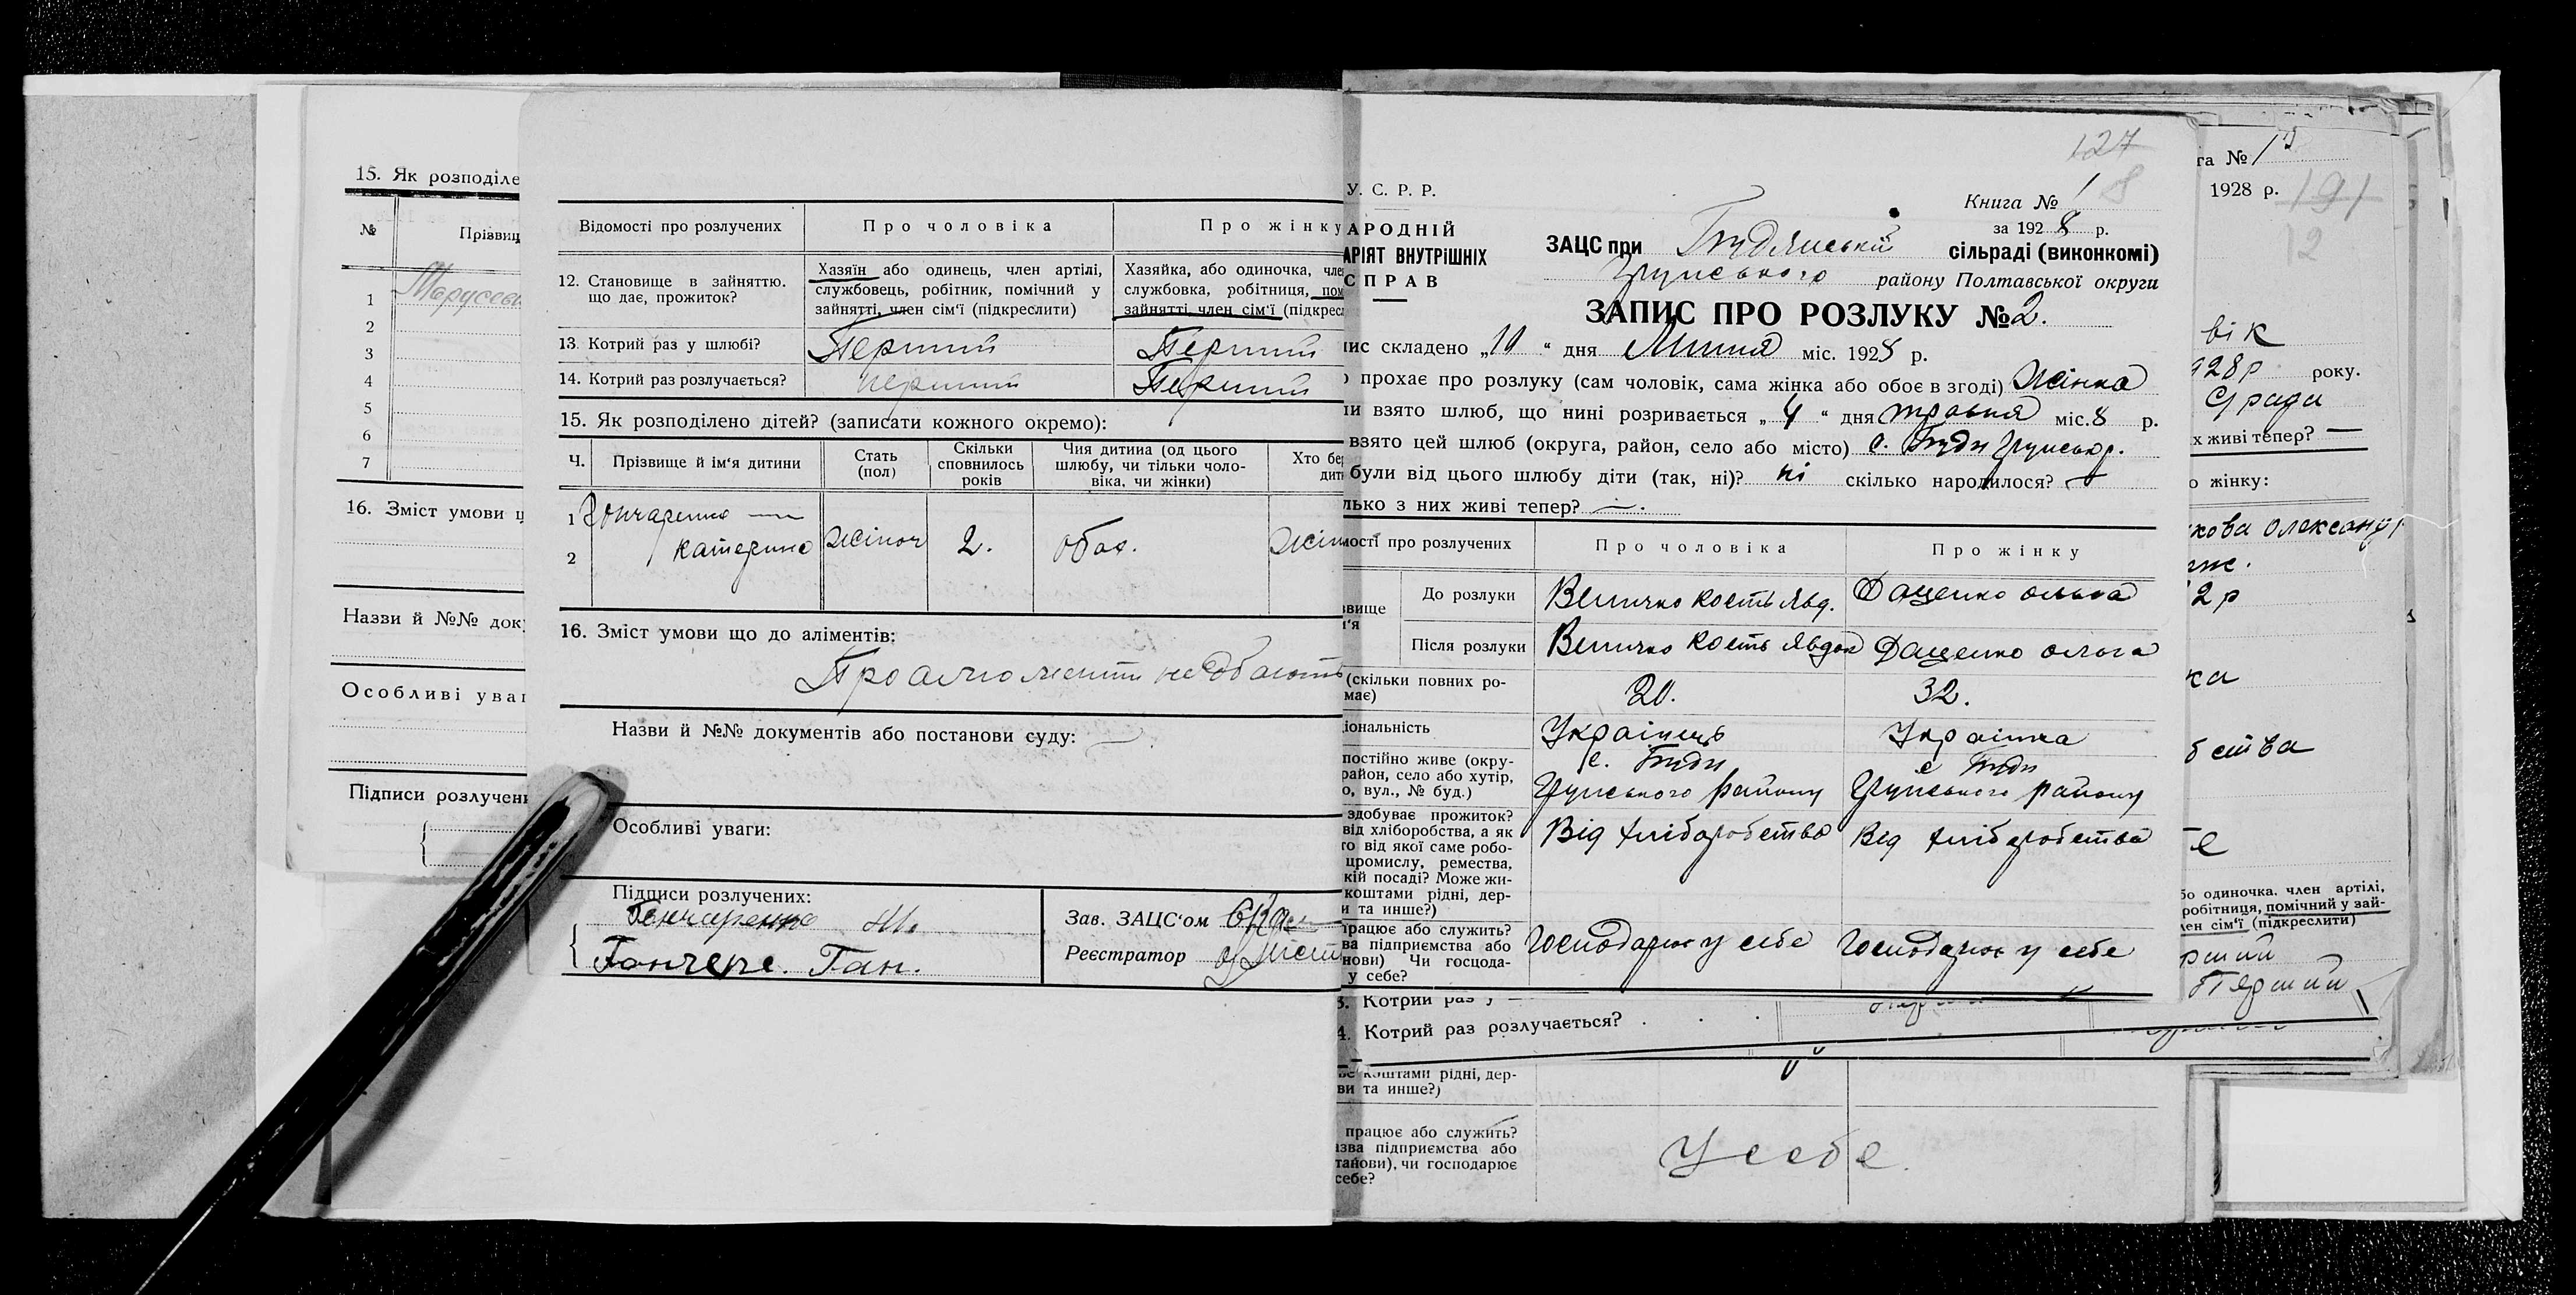 15. Як розподіле
№
Прізвищ
1
2
3
4
5
6
7
16. Зміст умови щ
Назви й №№ док
Особливі ува
Підписи розлучен
Відомості про розлучених
Про чоловіка
Про жінку
12. Становище в зайняттю.
що дає, прожиток?
Хазяїн або одинець, член артілі,
службовець, робітник, помічний у
зайнятті, член сім'ї (підкреслити)
Хазяйка, або одиночка, чле
службовка, робітниця, пом
зайнятті, член сім'ї (підкрес
13. Котрий раз у шлюбі?
Перший
Перший
14. Котрий раз розлучається?
перший
Перший
15. Як розподілено дітей? (записати кожного окремо):
Ч.
Прізвище й ім'я дитини
Стать
(пол)
Скільки
сповнилось
років
Чия дитина (од цього
шлюбу, чи тільки чоло-
віка, чи жінки)
Хто бе
дит
1 Гончаренко
2 Катерина
жіноч
2.
обох.
16. Зміст умови що до аліментів:
Назви й №№ документів або постанови суду:
Особливі уваги:
Підписи розлучених:
Гончаренко
Гончере. Ган.
Зав. ЗАЦС'ом
Реєстратор
127
У. С. Р. Р.
АРОДНІЙ
АРІЯТ ВНУТРІШНІХ
СПРАВ
Книга № 1
8
за 1928 р.
ЗАЦС при Будиській сільраді (виконкомі)
Грунського району Полтавської округи
ЗАПИС ПРО РОЗЛУКУ № 2.
ис складено „10" дня Липня міс. 1928 р.
о прохає про розлуку (сам чоловік, сама жінка або обоє в згоді) Жінка
ли взято шлюб, що нині розривається „4" дня травня міс. 8 р.
взято цей шлюб (округа, район, село або місто) с. Буди Грунськ р.
були від цього шлюбу діти (так, ні)? ні скілько народилося? —
лько з них живі тепер? —
мості про розлучених
Про чоловіка
Про жінку
звище
м'я
До розлуки
Величко Кость Явд.
Даценко Ольга
Після розлуки
Величко Кость Явдок
Даценко Ольга
(скільки повних ро-
має)
20.
32.
іональність
Українець
Українка
постійно живе (окру-
район, село або хутір,
о, вул., № буд.)
с. Буди
Грунського району
с Буди
Грунського району
здобуває прожиток?
від хліборобства, а як
то від якої саме робо-
промислу, ремества,
кій посаді? Може жи-
коштами рідні, дер-
и та инше?)
Від хліборобства
Від хліборобства
працює або служить?
ва підприємства або
нови) Чи господа-
у себе?
Господарює у себе
Господарює у себе
3. Котрий раз у
4. Котрий раз розлучається?
коштами рідні, дер-
ви та инше?)
працює або служить?
азва підприємства або
танови), чи господарює
себе?
У себе.
га № 1
1928 р. 191
12
вік
928р року.
С/рада
х живі тепер? —
о жінку:
кова Олександр
2р
ка
бства
бо одиночка, член артілі,
робітниця, помічний у зай-
лен сім'ї (підкреслити)
рший
Перший